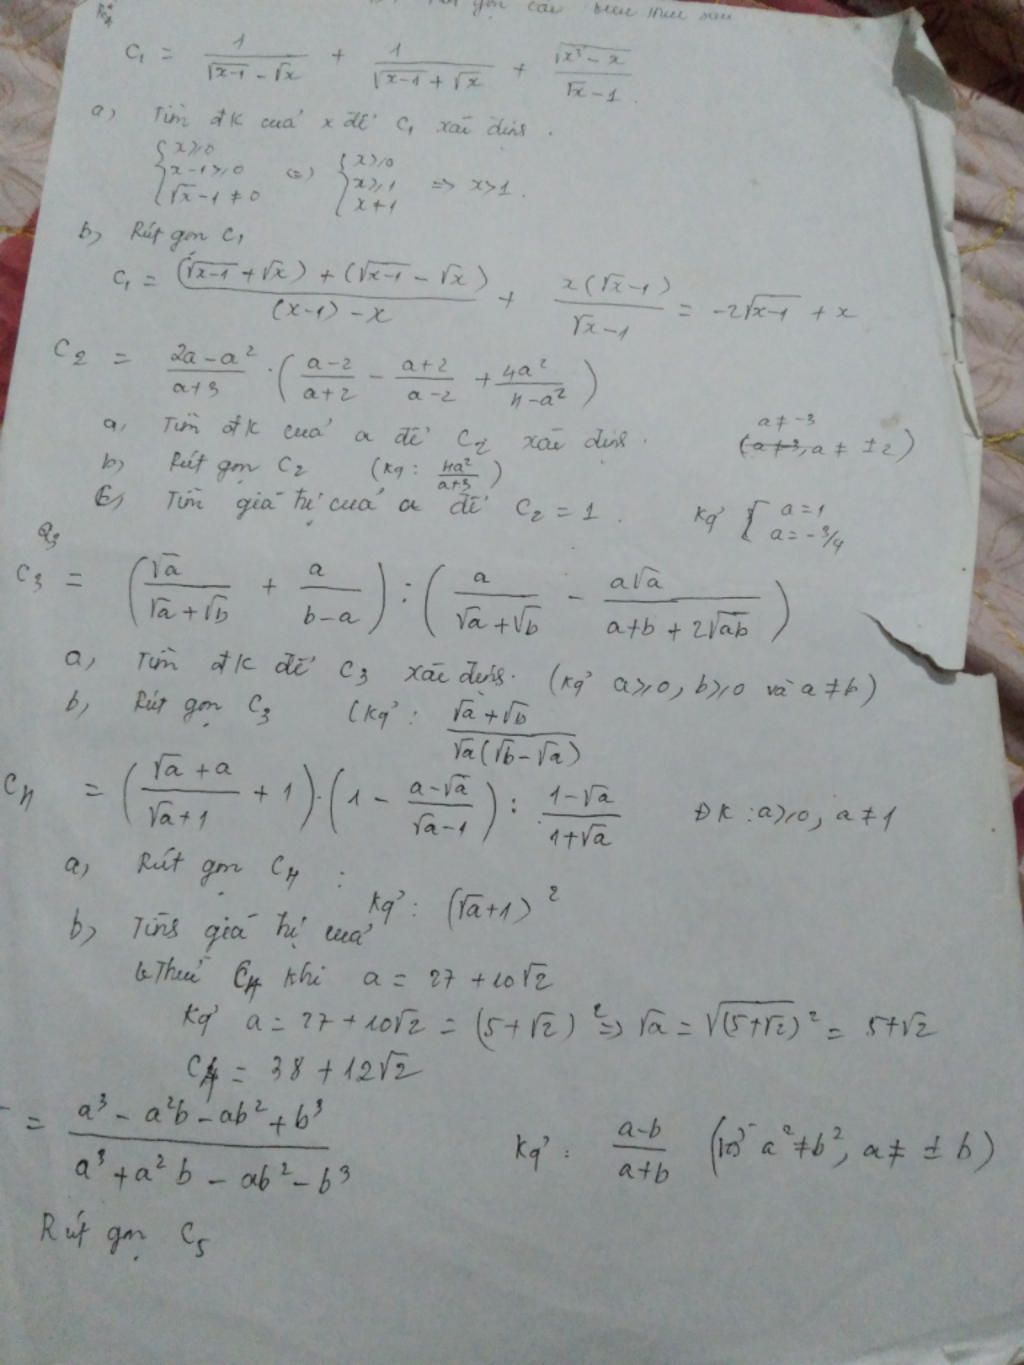 Rút gọn các biểu thức sau
C₁ = 1/(√(x-1) - √x) + 1/(√(x-1) + √x) + √(x³ - x)/(√x - 1).
a, Tìm đk của x để C₁ xác định.
{x ≥ 0; x-1 ≥ 0; √x - 1 ≠ 0 <=> {x ≥ 0; x ≥ 1; x ≠ 1 => x > 1.
b, Rút gọn C₁
C₁ = ((√(x-1) + √x) + (√(x-1) - √x))/((x-1) - x) + x(√x - 1)/(√x - 1) = -2√(x-1) + x
C₂ = (2a - a²)/(a+3) · ((a-2)/(a+2) - (a+2)/(a-2) + 4a²/(4-a²))
a, Tìm đk của a để C₂ xác định. (a ≠ -3, a ≠ ±2)
b, Rút gọn C₂ (Kq: 4a²/(a+3))
c, Tìm giá trị của a để C₂ = 1. Kq' { a = 1; a = -3/4
C₃ = (√a/(√a + √b) + a/(b-a)) : (a/(√a + √b) - a√a/(a + b + 2√ab))
a, Tìm đk để C₃ xác định. (Kq' a ≥ 0, b ≥ 0 và a ≠ b)
b, Rút gọn C₃ (Kq': (√a + √b)/(√a(√b - √a))
C₄ = ((√a + a)/(√a + 1) + 1)·(1 - (a - √a)/(√a - 1)) : (1 - √a)/(1 + √a) ĐK: a ≥ 0, a ≠ 1
a, Rút gọn C₄:
Kq': (√a + 1)²
b, Tính giá trị của
b thức C₄ khi a = 27 + 10√2
Kq' a = 27 + 10√2 = (5 + √2)² => √a = √(5+√2)² = 5 + √2
C₄ = 38 + 12√2
= (a³ - a²b - ab² + b³)/(a³ + a²b - ab² - b³) Kq': (a-b)/(a+b) (a² ≠ b², a ≠ ± b)
Rút gọn C₅